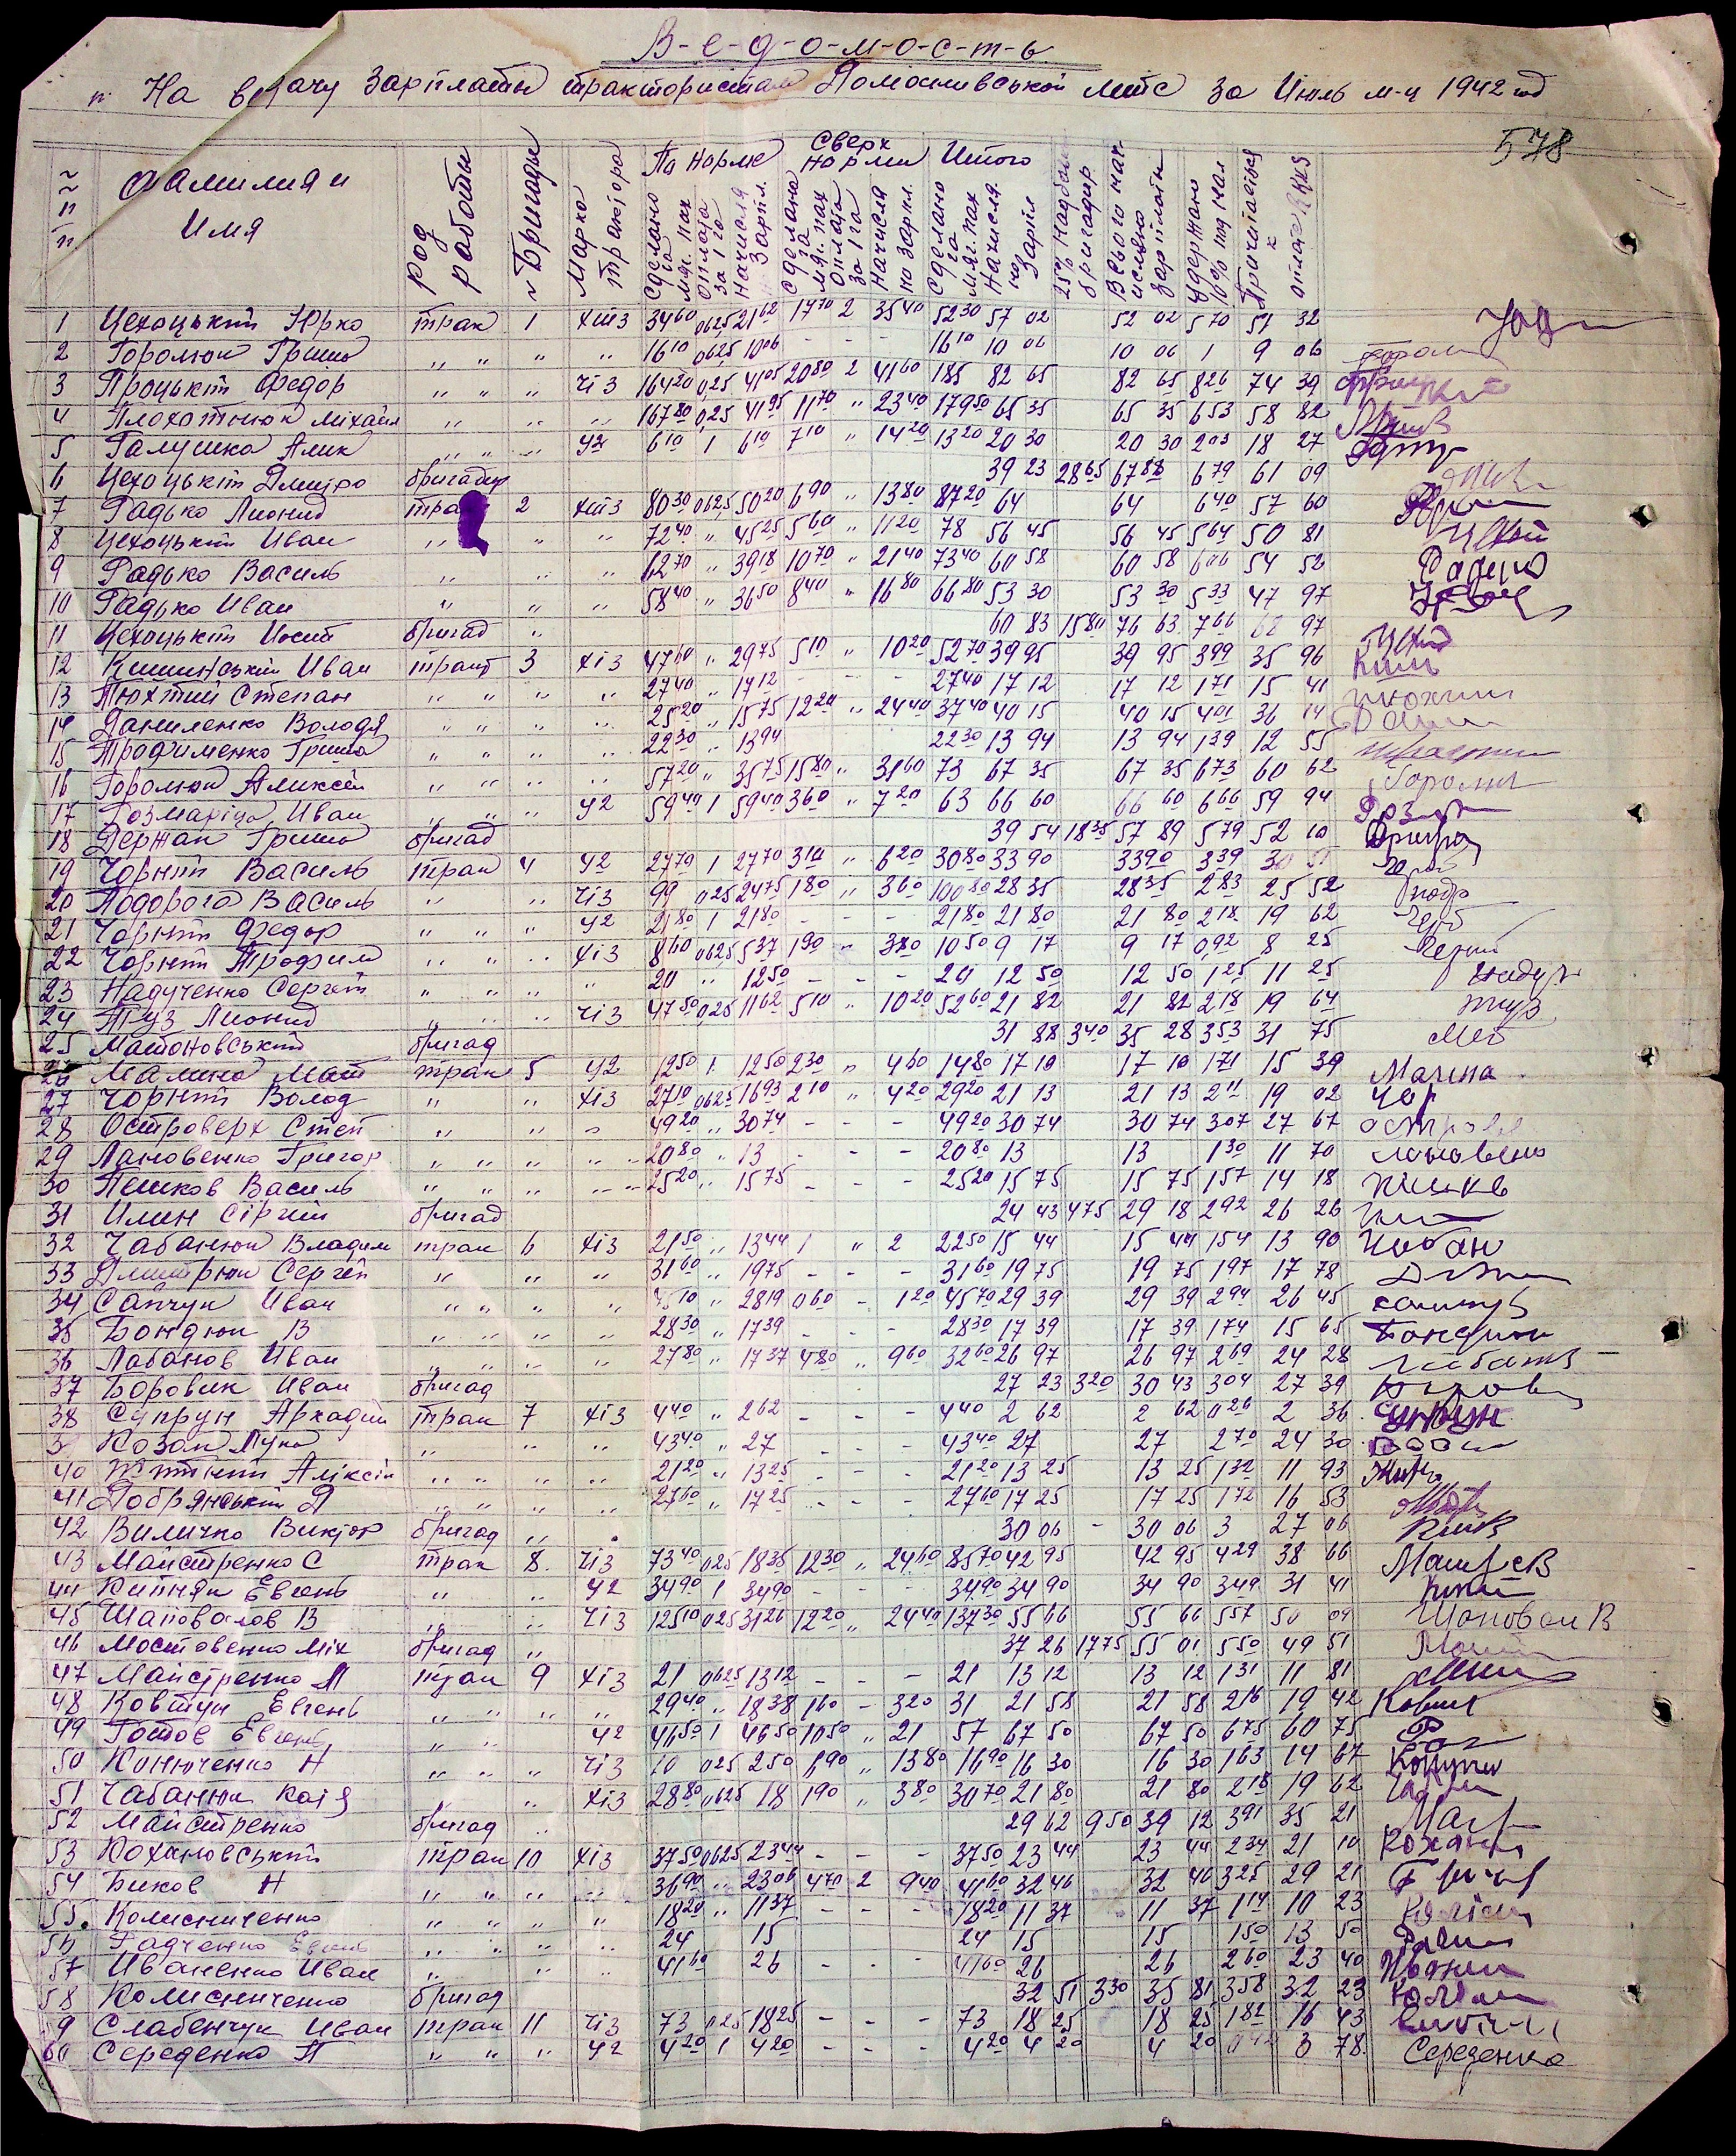 В-е-д-о-м-о-с-т-ь
На видачу Зарплаты трактористам Помошливської мтс за Июль м-ц 1942 год
578
Фамилия и Имя
род работы
Бригады
Марка трактора
По норме
Сверх нормы
Итого
Сделано га мяг. пах
Оплата за 1 га
Начисле зарпл.
Сделано га мяг. пах
Оплата за 1 га
Начисле но зарпл.
Сделано га мяг. пах
Начисле но Зарпл
25% надбав бригадир.
Всього начислено зарплати
Удержано 10% под нал
1 Цехоцький Юрко трак 1 хтз 34 60 0625 21 62 17 70 2 35 40 52 30 57 02 52 02 5 70 51 32
2 Горолюк Гриша " " " " 16 10 0625 10 06 - - - 16 10 10 06 10 06 1 9 06
3 Процький Федор " " " ЧТЗ 164 20 0,25 41 05 20 80 2 41 60 185 82 65 82 65 8 26 74 39
4 Плохотнюк Міхайл " " " 167 80 0,25 41 95 11 70 " 23 40 179 50 65 35 65 35 6 53 58 82
5 Галушка Алик " " " У2 6 10 1 6 10 7 10 " 14 20 13 20 20 30 20 30 2 03 18 27
6 Цехоцький Дмитро бригадир 39 23 28 65 67 88 6 79 61 09
7 Радько Лионид трак 2 хтз 80 30 0625 50 20 6 90 " 13 80 87 20 64 64 6 40 57 60
8 Цехоцький Иван " " " 72 40 " 45 25 5 60 " 11 20 78 56 45 56 45 5 64 50 81
9 Радько Василь " " " 62 70 " 39 18 10 70 " 21 40 73 40 60 58 60 58 6 06 54 52
10 Радько Иван " " " 58 40 " 36 50 8 40 " 16 80 66 80 53 30 53 30 5 33 47 97
11 Цехоцький Иосип бригад " 60 83 15 80 76 63 7 66 68 97
12 Кишинський Иван тракт 3 хтз 47 60 " 29 75 5 10 " 10 20 52 70 39 95 39 95 3 99 35 96
13 Тюхтий Степан " " " " 27 40 " 17 12 - - - 27 40 17 12 17 12 1 71 15 41
14 Даниленко Володя " " " " 25 20 " 15 75 12 20 " 24 40 37 40 40 15 40 15 4 01 36 14
15 Трофименко Гриша " " " " 22 30 " 13 94 22 30 13 94 13 94 1 39 12 55
16 Горолюк Аликсей " " " " 57 20 " 35 75 15 80 " 31 60 73 67 35 67 35 6 73 60 62
17 Розмаріца Иван " " " У2 59 40 1 59 40 3 60 " 7 20 63 66 60 66 60 6 66 59 94
18 Держак Гриша бригад 39 54 18 35 57 89 5 79 52 10
19 Чорний Василь трак 4 У2 27 70 1 27 70 3 10 " 6 20 30 80 33 90 33 90 3 39 30 51
20 Подорога Василь " " ЧТЗ 99 0,25 24 75 1 80 " 3 60 100 80 28 35 28 35 2 83 25 52
21 Чорний Федор " " " У2 21 80 1 21 80 - - - 21 80 21 80 21 80 2 18 19 62
22 Чорний Трофим " " " ХТЗ 8 60 0625 5 37 1 90 " 3 80 10 50 9 17 9 17 0,92 8 25
23 Надученко Сергій " " " " 20 " 12 50 - - - 20 12 50 12 50 1 25 11 25
24 Туз Лионид " " " ЧТЗ 47 50 0,25 11 62 5 10 " 10 20 52 60 21 82 21 82 2 18 19 64
25 Матоновський бригад 31 88 3 40 35 28 3 53 31 75
26 Малина Мат трак 5 У2 12 50 1 12 50 2 30 " 4 60 14 80 17 10 17 10 1 71 15 39 Малина
27 Чорний Волод " " ХТЗ 27 10 0625 16 93 2 10 " 4 20 29 20 21 13 21 13 2 11 19 02 Чор
28 Островерх Степ " " " 49 20 " 30 74 - - - 49 20 30 74 30 74 3 07 27 67
29 Лановенко Григор " " " " 20 80 " 13 - - - 20 80 13 13 1 30 11 70
30 Пешков Василь " " " " 25 20 " 15 75 - - - 25 20 15 75 15 75 1 57 14 18
31 Илин Сіргій бригад 24 43 4 75 29 18 2 92 26 26
32 Чабанюк Владим трак 6 ХТЗ 21 50 " 13 44 1 " 2 22 50 15 44 15 44 1 54 13 90 Чабан
33 Дмитрюк Сергей " " " 31 60 " 19 75 - - - 31 60 19 75 19 75 1 97 17 78
34 Сапчук Иван " " " " 45 10 " 28 19 0 60 - 1 20 45 70 29 39 29 39 2 94 26 45
35 Бондюк В " " " " 28 30 " 17 39 - - - 28 30 17 39 17 39 1 74 15 65 Бондюк
36 Лабанов Иван " " " " 27 80 " 17 37 4 80 " 9 60 32 60 26 97 26 97 2 69 24 28
37 Боровик Иван бригад 27 23 3 20 30 43 3 04 27 39
38 Супрун Аркадий трак 7 ХТЗ 4 40 " 2 62 - - - 4 40 2 62 2 62 0 26 2 36
3 Козак Лука " " " 43 40 " 27 - - - 43 40 27 27 2 70 24 30
40 Житній Аліксій " " " " 21 20 " 13 25 - - - 21 20 13 25 13 25 1 32 11 93
41 Добрянський Д " " " " 27 60 " 17 25 - - - 27 60 17 25 17 25 1 72 16 53
42 Виличко Виктор бригад " 30 06 - 30 06 3 27 06
43 Майстренко С трак 8 ЧТЗ 73 40 0,25 18 35 12 30 " 24 60 85 70 42 95 42 95 4 29 38 66
44 Кипняк Евгень " " У2 34 90 1 34 90 - - - 34 90 34 90 34 90 3 49 31 41
45 Шаповалов В " " ЧТЗ 125 10 025 31 26 12 20 " 24 40 137 30 55 66 55 66 5 57 50 09 Шаповал В
46 Мостовенко Міх бригад " 37 26 17 75 55 01 5 50 49 51
47 Майстренко М трак 9 ХТЗ 21 0625 13 12 - - - 21 13 12 13 12 1 31 11 81
48 Ковтун Евгень " " " " 29 40 " 18 38 1 60 - 3 20 31 21 58 21 58 2 16 19 42
49 Готов Евгень " " У2 46 50 1 46 50 10 50 " 21 57 67 50 67 50 6 75 60 75
50 Конюченко Н " " " ЧТЗ 10 025 2 50 6 90 " 13 80 16 90 16 30 16 30 1 63 14 67
51 Чабанюк Катя " ХТЗ 28 80 0625 18 1 90 " 3 80 30 70 21 80 21 80 2 18 19 62
52 Майстренко бригад " 29 62 9 50 39 12 3 91 35 21
53 Кохановський трак 10 ХТЗ 37 50 0625 23 44 - - - 37 50 23 44 23 44 2 34 21 10
54 Биков Н " " " " 36 90 " 23 06 4 70 2 9 40 41 60 32 46 32 46 3 25 29 21
55. Колисниченко " " " " 18 20 " 11 37 - - - 18 20 11 37 11 37 1 14 10 23
56 Радченко Евгень " " " " 24 15 - - - 24 15 15 1 50 13 50
57 Иваненко Иван " " " 41 60 26 - - - 41 60 26 26 2 60 23 40
58 Колисниченко бригад 32 51 3 30 35 81 3 58 32 23
59 Слабенчук Иван трак 11 ЧТЗ 73 025 18 25 - - - 73 18 25 18 25 1 82 16 43
60 Середенко П " " " У2 4 20 1 4 20 - - - 4 20 4 20 4 20 0 42 3 78 Середенко